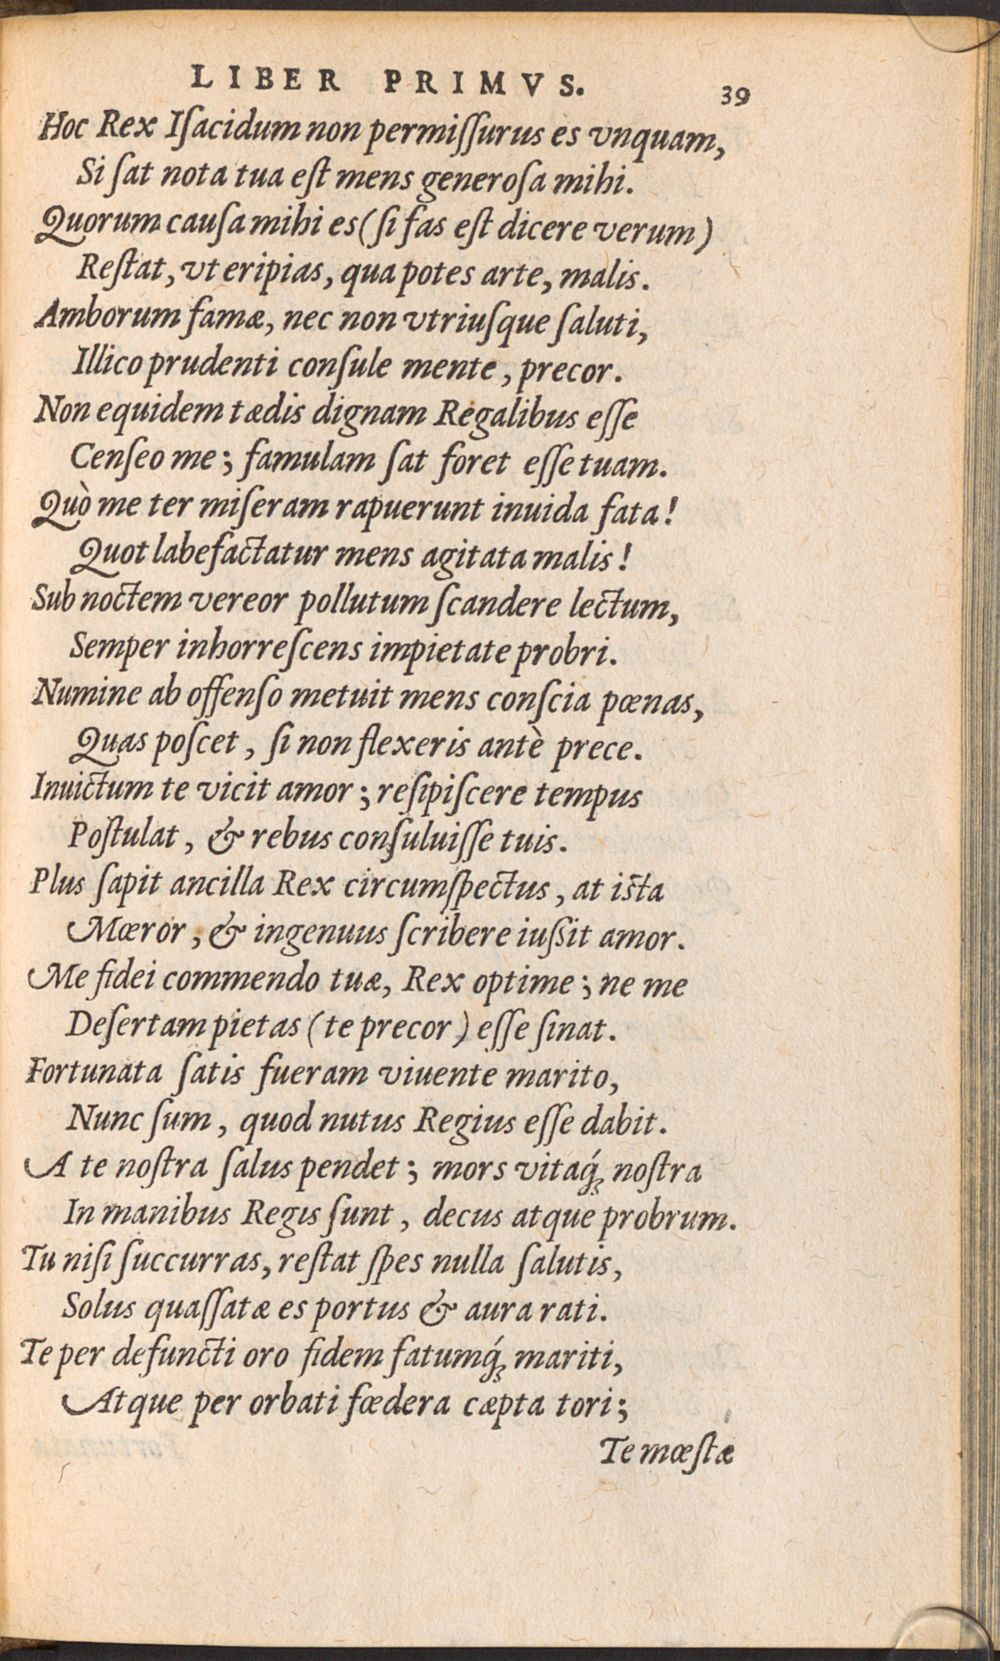 LIBER PRIMVS. 39
Hoc Rex Iſacidum non permiſſurus es vnquam,
Si ſat nota tua eſt mens generoſa mihi.
Quorum cauſa mihi es (ſi fas eſt dicere verum)
Reſtat, vt eripias, qua potes arte, malis.
Amborum famæ, nec non vtriuſque ſaluti,
Illico prudenti conſule mente, precor.
Non equidem tædis dignam Regalibus eſſe
Cenſeo me; famulam ſat foret eſſe tuam.
Quò me ter miſeram rapuerunt inuida fata!
Quot labefactatur mens agitata malis!
Sub noctem vereor pollutum ſcandere lectum,
Semper inhorreſcens impietate probri.
Numine ab offenſo metuit mens conſcia pœnas,
Quas poſcet, ſi non flexeris antè prece.
Inuictum te vicit amor; reſipiſcere tempus
Poſtulat, & rebus conſuluiſſe tuis.
Plus ſapit ancilla Rex circumſpectus, at iſta
Mœror, & ingenuus ſcribere iuſsit amor.
Me fidei commendo tuæ, Rex optime; ne me
Deſertam pietas (te precor) eſſe ſinat.
Fortunata ſatis fueram viuente marito,
Nunc ſum, quod nutus Regius eſſe dabit.
A te noſtra ſalus pendet; mors vitaq́; noſtra
In manibus Regis ſunt, decus atque probrum.
Tu niſi ſuccurras, reſtat ſpes nulla ſalutis,
Solus quaſſatæ es portus & aura rati.
Te per defuncti oro fidem fatumq́; mariti,
Atque per orbati fœdera cæpta tori;
Te mœſtæ